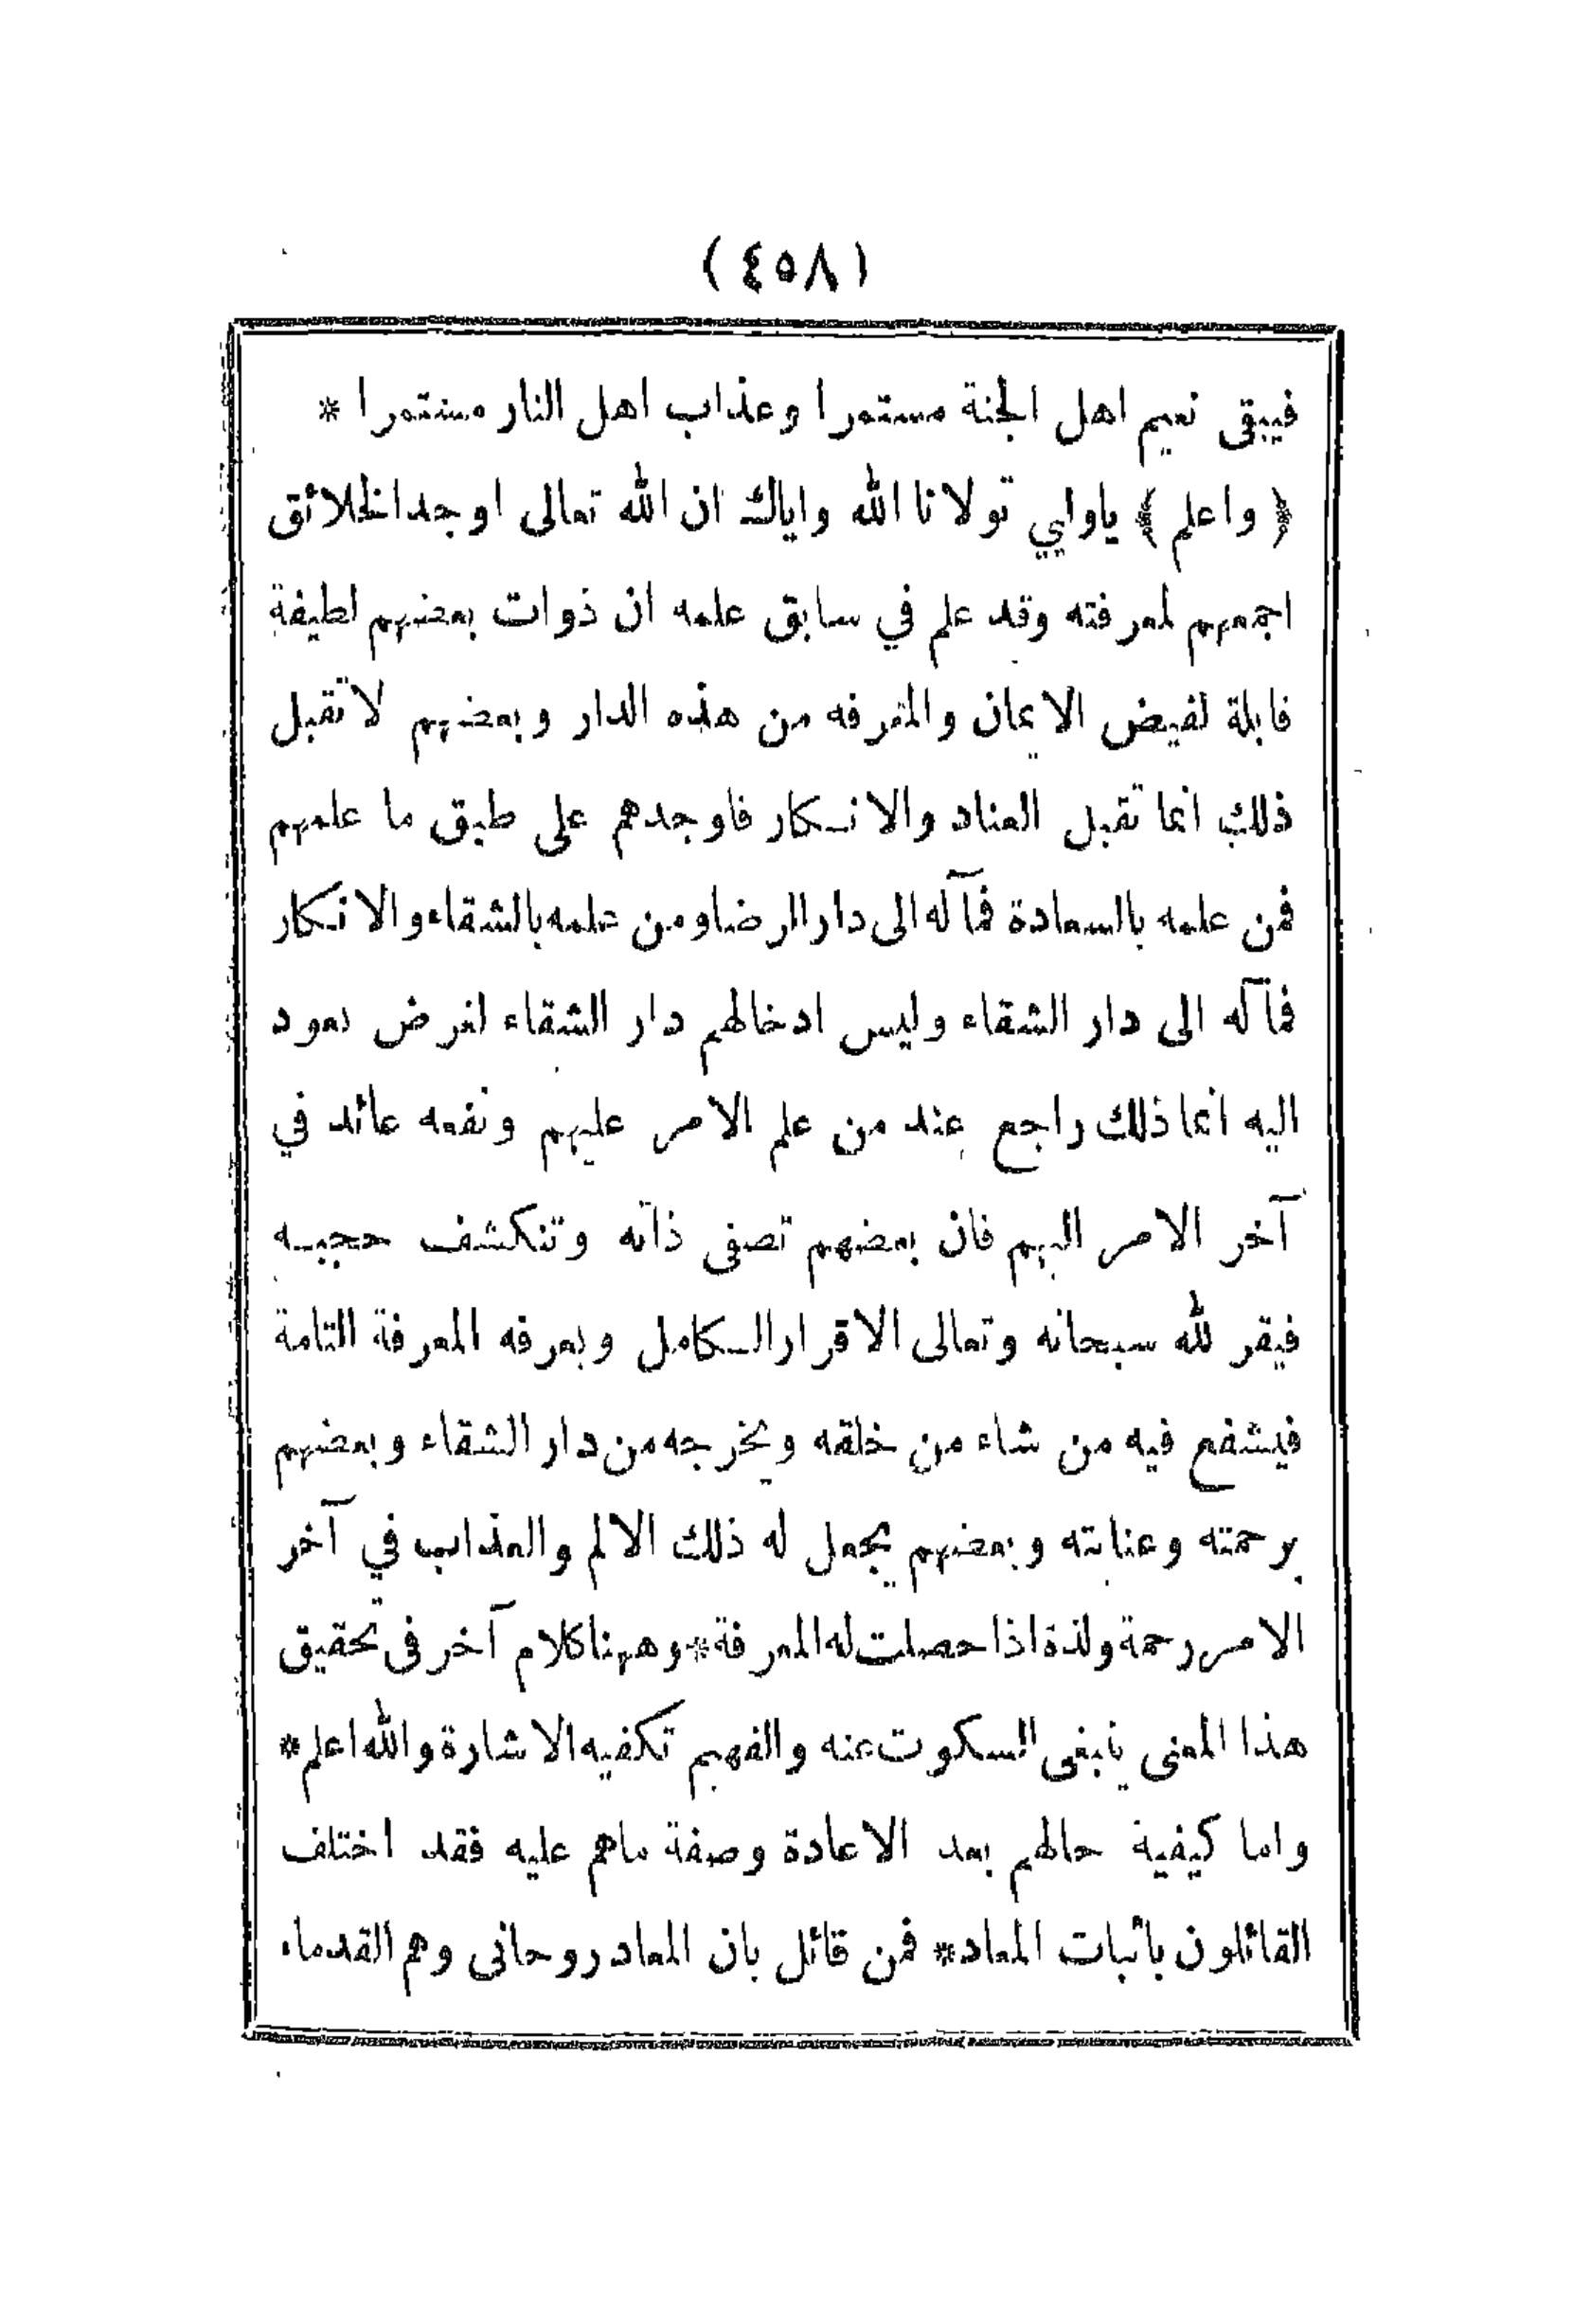 (٤٥٨)
فيبقى نعيم اهل الجنة مستمرا وعذاب اهل النار مستمرا *
﴿ واعلم ﴾ ياوليي تولانا الله واياك ان الله تعالى اوجد الخلائق
اجمعهم لمعرفته وقد علم في سابق علمه ان ذوات بعضهم لطيفة
قابلة لفيض الايمان والمعرفه من هذه الدار وبعضهم لا تقبل
ذلك انما تقبل العناد والانكار فاوجدهم على طبق ما علمهم
فمن علمه بالسعادة فمآله الى دار الرضا ومن علمه بالشقاء والانكار
فمآله الى دار الشقاء وليس ادخالهم دار الشقاء لغرض يعود
اليه انما ذلك راجع عند من علم الامر عليهم ونفعه عائد في
آخر الامر اليهم فان بعضهم تصفى ذاته وتنكشف حجبه
فيقر لله سبحانه وتعالى الاقرار الكامل ويعرفه المعرفة التامة
فيشفع فيه من شاء من خلقه ويخرجه من دار الشقاء وبعضهم
برحمته وعنايته وبعضهم يجعل له ذلك الالم والعذاب في آخر
الامر رحمة ولذة اذا حصلت له المعرفة * وههنا كلام آخر فى تحقيق
هذا المعنى ينبغى السكوت عنه والفهيم تكفيه الاشارة والله اعلم *
واما كيفية حالهم بعد الاعادة وصفة ماهم عليه فقد اختلف
القائلون بأثبات المعاد * فمن قائل بان المعاد روحانى وهم القدماء